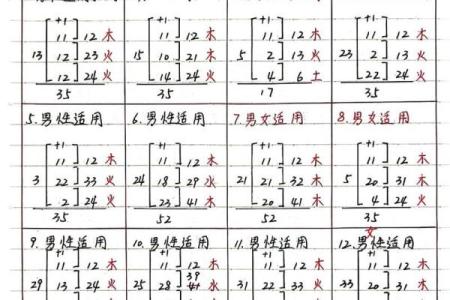 +1 +1 +1 +1
11 12 木 11 12 木 11 12 木 11 12 木
13 12 23 火 15 10 21 木 5 2 13 火 23 2 13 火
12 24 火 14 24 火 4 6 土 22 24 火
35 35 17 35
5.男性适用 6.男性适用 7.男女适用 8.男女适用
+1 +1 +1 +1
11 12 木 11 12 木 11 12 木 11 12 木
3 22 33 火 24 18 29 水 21 21 32 木 5 20 31 木
2 24 火 23 41 木 20 41 木 4 24 火
35 52 52 35
9.男性适用 10.男性适用 11.男性适用 12.男性适用
女
+1 +1 +1 +1
11 12 木 11 12 木 11 12 木 11 12 木
29 13 24 火 25 28 39 31 22 33 火 33 20 31 木